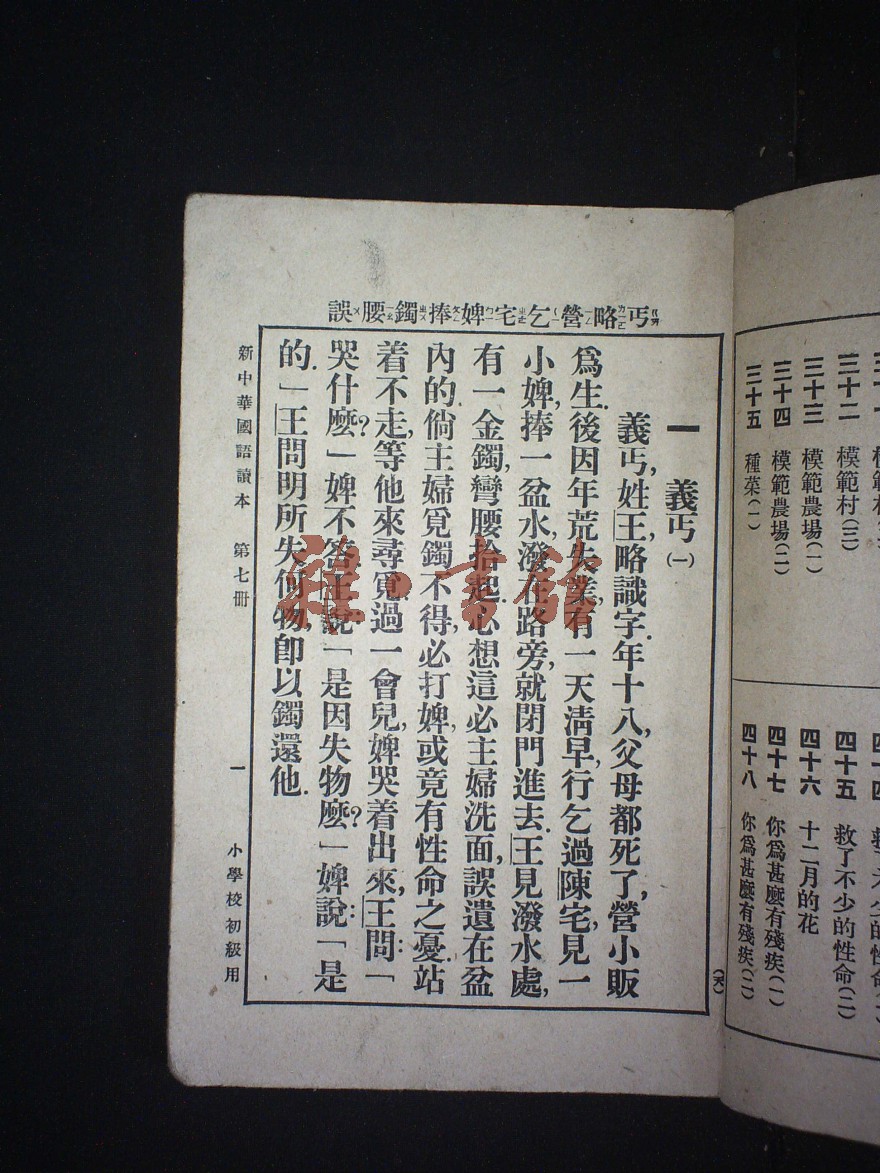 丐略營乞宅婢捧鐲腰誤
一 義丐(一)
義丐,姓王,略識字.年十八,父母都死了,營小販
爲生.後因年荒失業,有一天淸早,行乞過陳宅,見一
小婢,捧一盆水,潑在路旁,就閉門進去.王見潑水處,
有一金鐲,彎腰拾起,心想這必主婦洗面,誤遺在盆
內的.倘主婦覓鐲不得,必打婢,或竟有性命之憂.站
着不走,等他來尋覓.過一會兒,婢哭着出來,王問:「
哭什麽?」婢不答.王說:「是因失物麽?」婢說:「是
的.」王問明所失何物,卽以鐲還他.
新中華國語讀本 第七冊
一
小學校初級用
三十二 模範村(三)
三十三 模範農場(一)
三十四 模範農場(二)
三十五 種菜(一)
四十五 救了不少的性命(二)
四十六 十二月的花
四十七 你爲甚麽有殘疾(一)
四十八 你爲甚麽有殘疾(二)